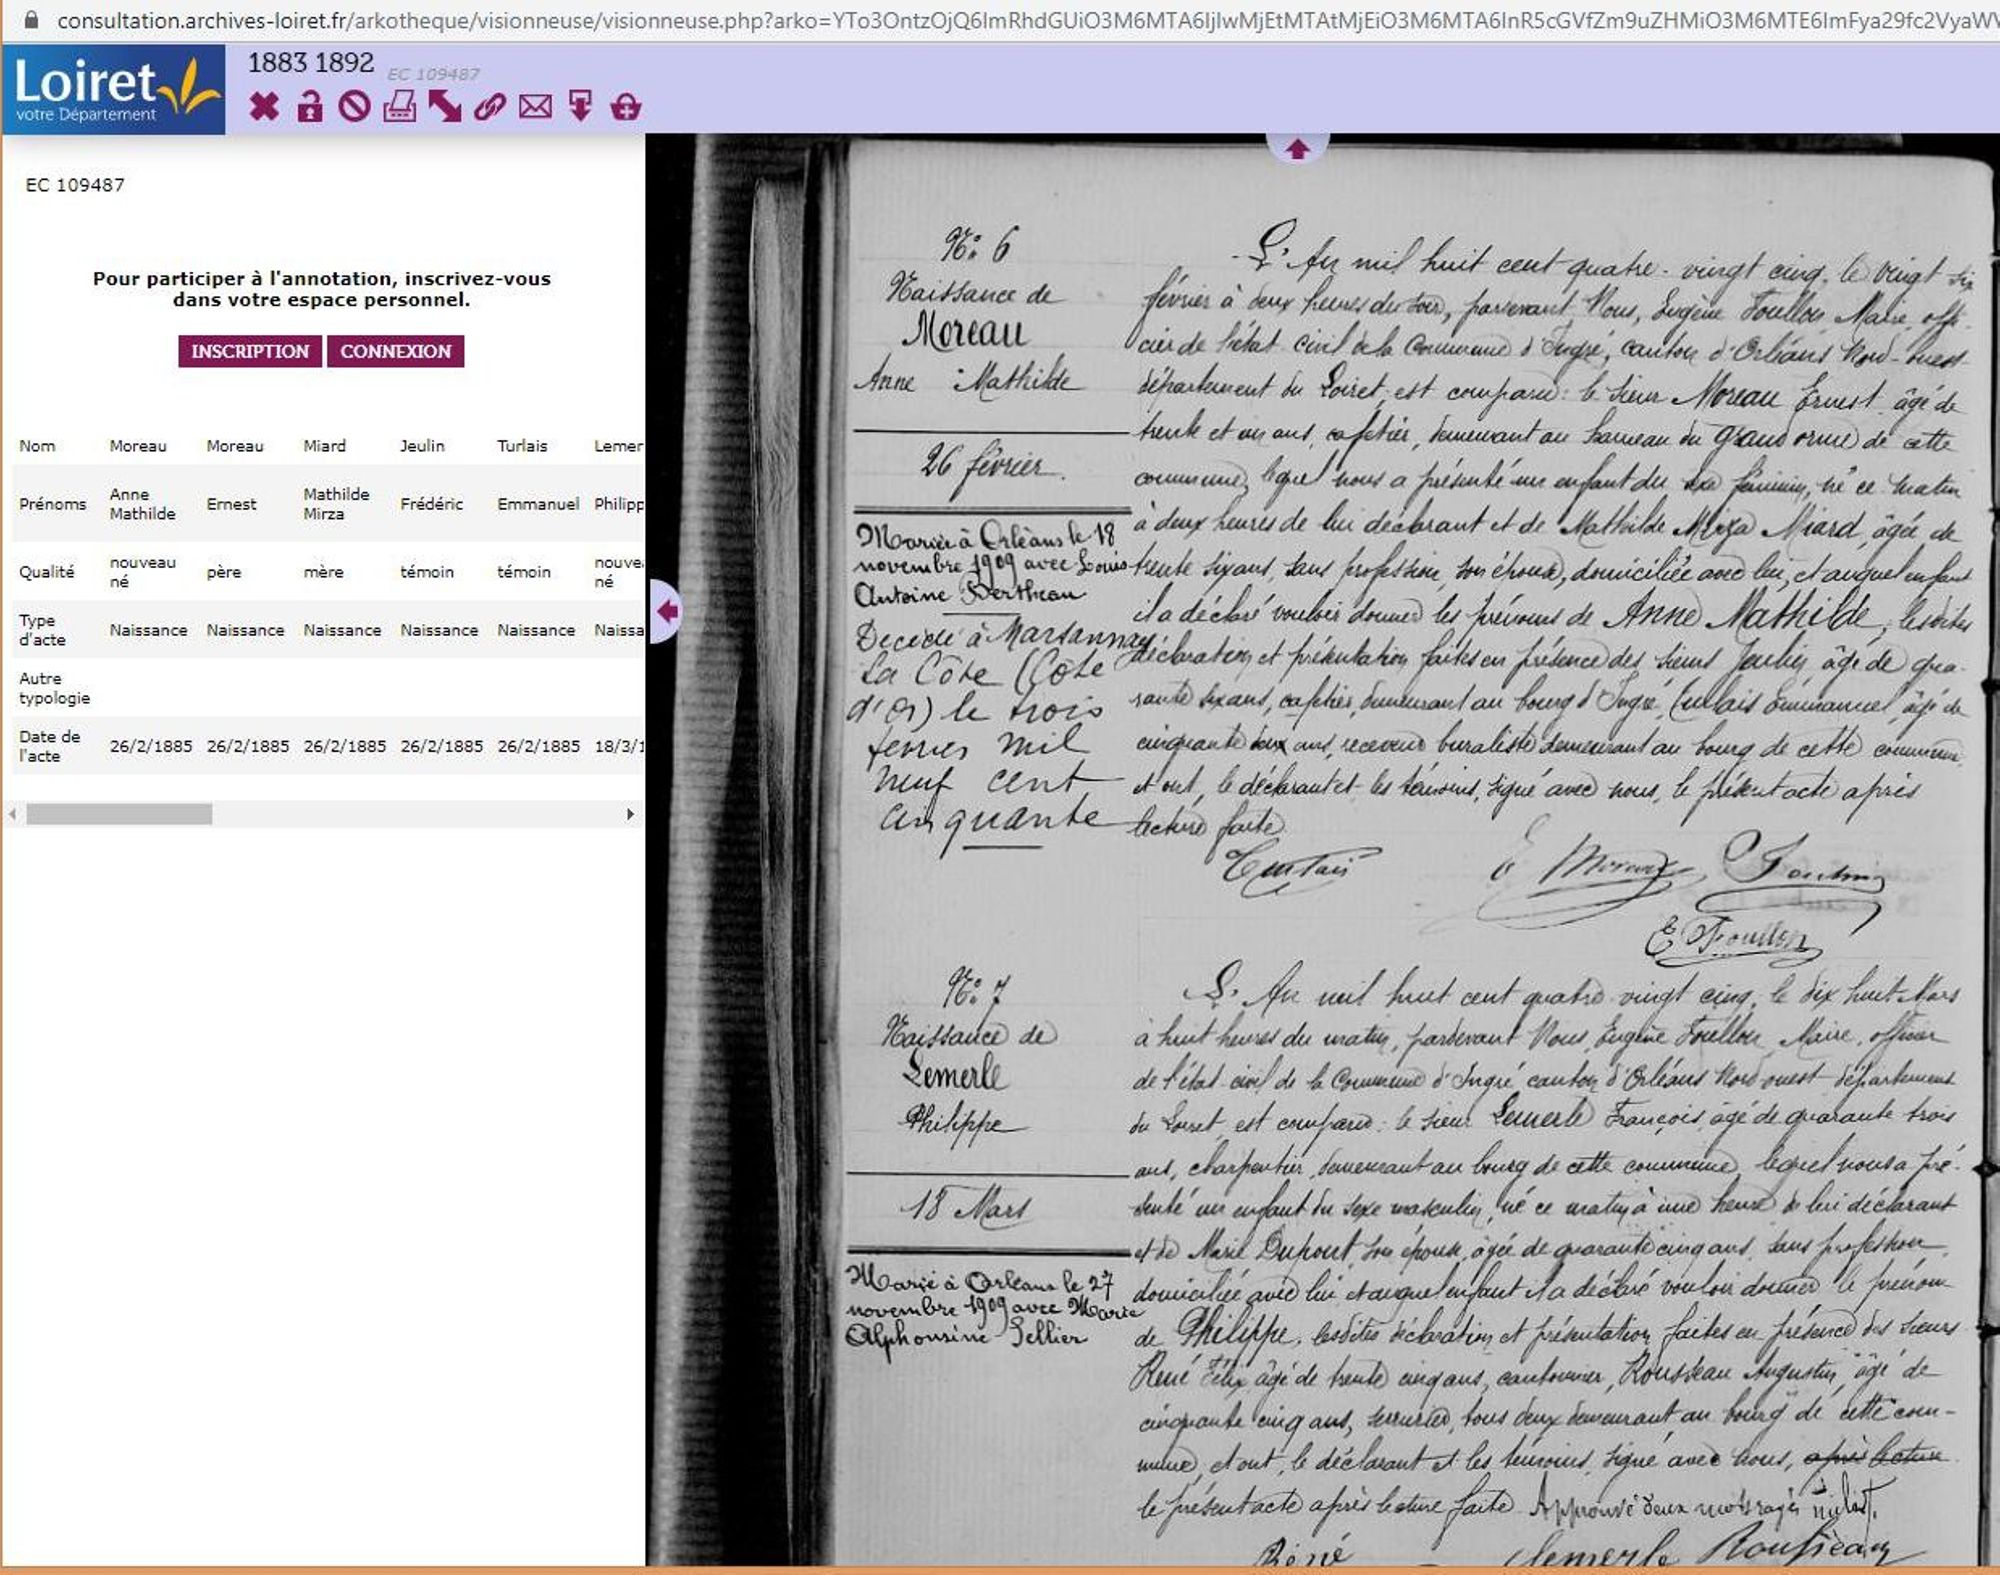 consultation.archives-loiret.fr/arkotheque/visionneuse/visionneuse.php?arko=
Loiret
votre Département
1883 1892 EC 109487
EC 109487
Pour participer à l'annotation, inscrivez-vous
dans votre espace personnel.
INSCRIPTION CONNEXION
Nom Moreau Moreau Miard Jeulin Turlais Lemer
Prénoms Anne Mathilde Ernest Mathilde Mirza Frédéric Emmanuel Philipp
Qualité nouveau né père mère témoin témoin nouve né
Type d'acte Naissance Naissance Naissance Naissance Naissance Naissa
Autre typologie
Date de l'acte 26/2/1885 26/2/1885 26/2/1885 26/2/1885 26/2/1885 18/3/1
N°: 6
Naissance de
Moreau
Anne Mathilde
26 février.
Mariée à Orléans le 18
novembre 1909 avec Louis
Antoine Bertheau
Décédé à Marsannay
la Côte (Côte
d'Or) le trois
mil
neuf cent
cinquante
L'An mil huit cent quatre-vingt cinq, le vingt six
février à deux heures du soir, pardevant Nous, Eugène Foullon, Maire, offi-
cier de l'état civil de la Commune d'Ingré, canton d'Orléans Nord-ouest
département du Loiret, est comparu: le sieur Moreau Ernest, âgé de
trente et un ans, cafetier, demeurant au hameau du grand orme de cette
commune, lequel nous a présenté un enfant du sexe féminin, né ce matin
à deux heures de lui déclarant et de Mathilde Mirza Miard, âgée de
trente six ans, sans profession, son épouse, domiciliée avec lui, et auquel enfant
il a déclaré vouloir donner les prénoms de Anne Mathilde, lesdites
déclaration et présentation faites en présence des sieurs Jeulin, âgé de qua-
rante six ans, cafetier, demeurant au bourg d'Ingré, Turlais Emmanuel, âgé de
cinquante deux ans, receveur buraliste demeurant au bourg de cette commune
et ont, le déclarant et les témoins, signé avec nous, le présent acte après
lecture faite.
Turlais E Moreau Jeulin
E Foullon
N°: 7
Naissance de
Lemerle
Philippe
18 Mars
Marié à Orléans le 27
novembre 1909 avec Marie
Alphonsine Sellier
L'An mil huit cent quatre-vingt cinq, le dix huit Mars
à huit heures du matin, pardevant Nous, Eugène Foullon, Maire, officier
de l'état-civil de la Commune d'Ingré canton d'Orléans Nord-ouest département
du Loiret, est comparu: le sieur Lemerle François, âgé de quarante trois
ans, charpentier, demeurant au bourg de cette commune, lequel nous a pré-
senté un enfant du sexe masculin, né ce matin à une heure de lui déclarant
et de Marie Dupont, son épouse, âgée de quarante cinq ans, sans profession,
domiciliée avec lui et auquel enfant il a déclaré vouloir donner le prénom
de Philippe, lesdites déclaration et présentation faites en présence des sieurs
René Félix âgé de trente cinq ans, cantonnier, Rousseau Augustin, âgé de
cinquante cinq ans, serrurier, tous deux demeurant au bourg de cette com-
mune, et ont, le déclarant et les témoins, signé avec nous, après lecture
le présent acte après lecture faite. Approuvé deux mots rayés nuls.
René Lemerle Rousseau